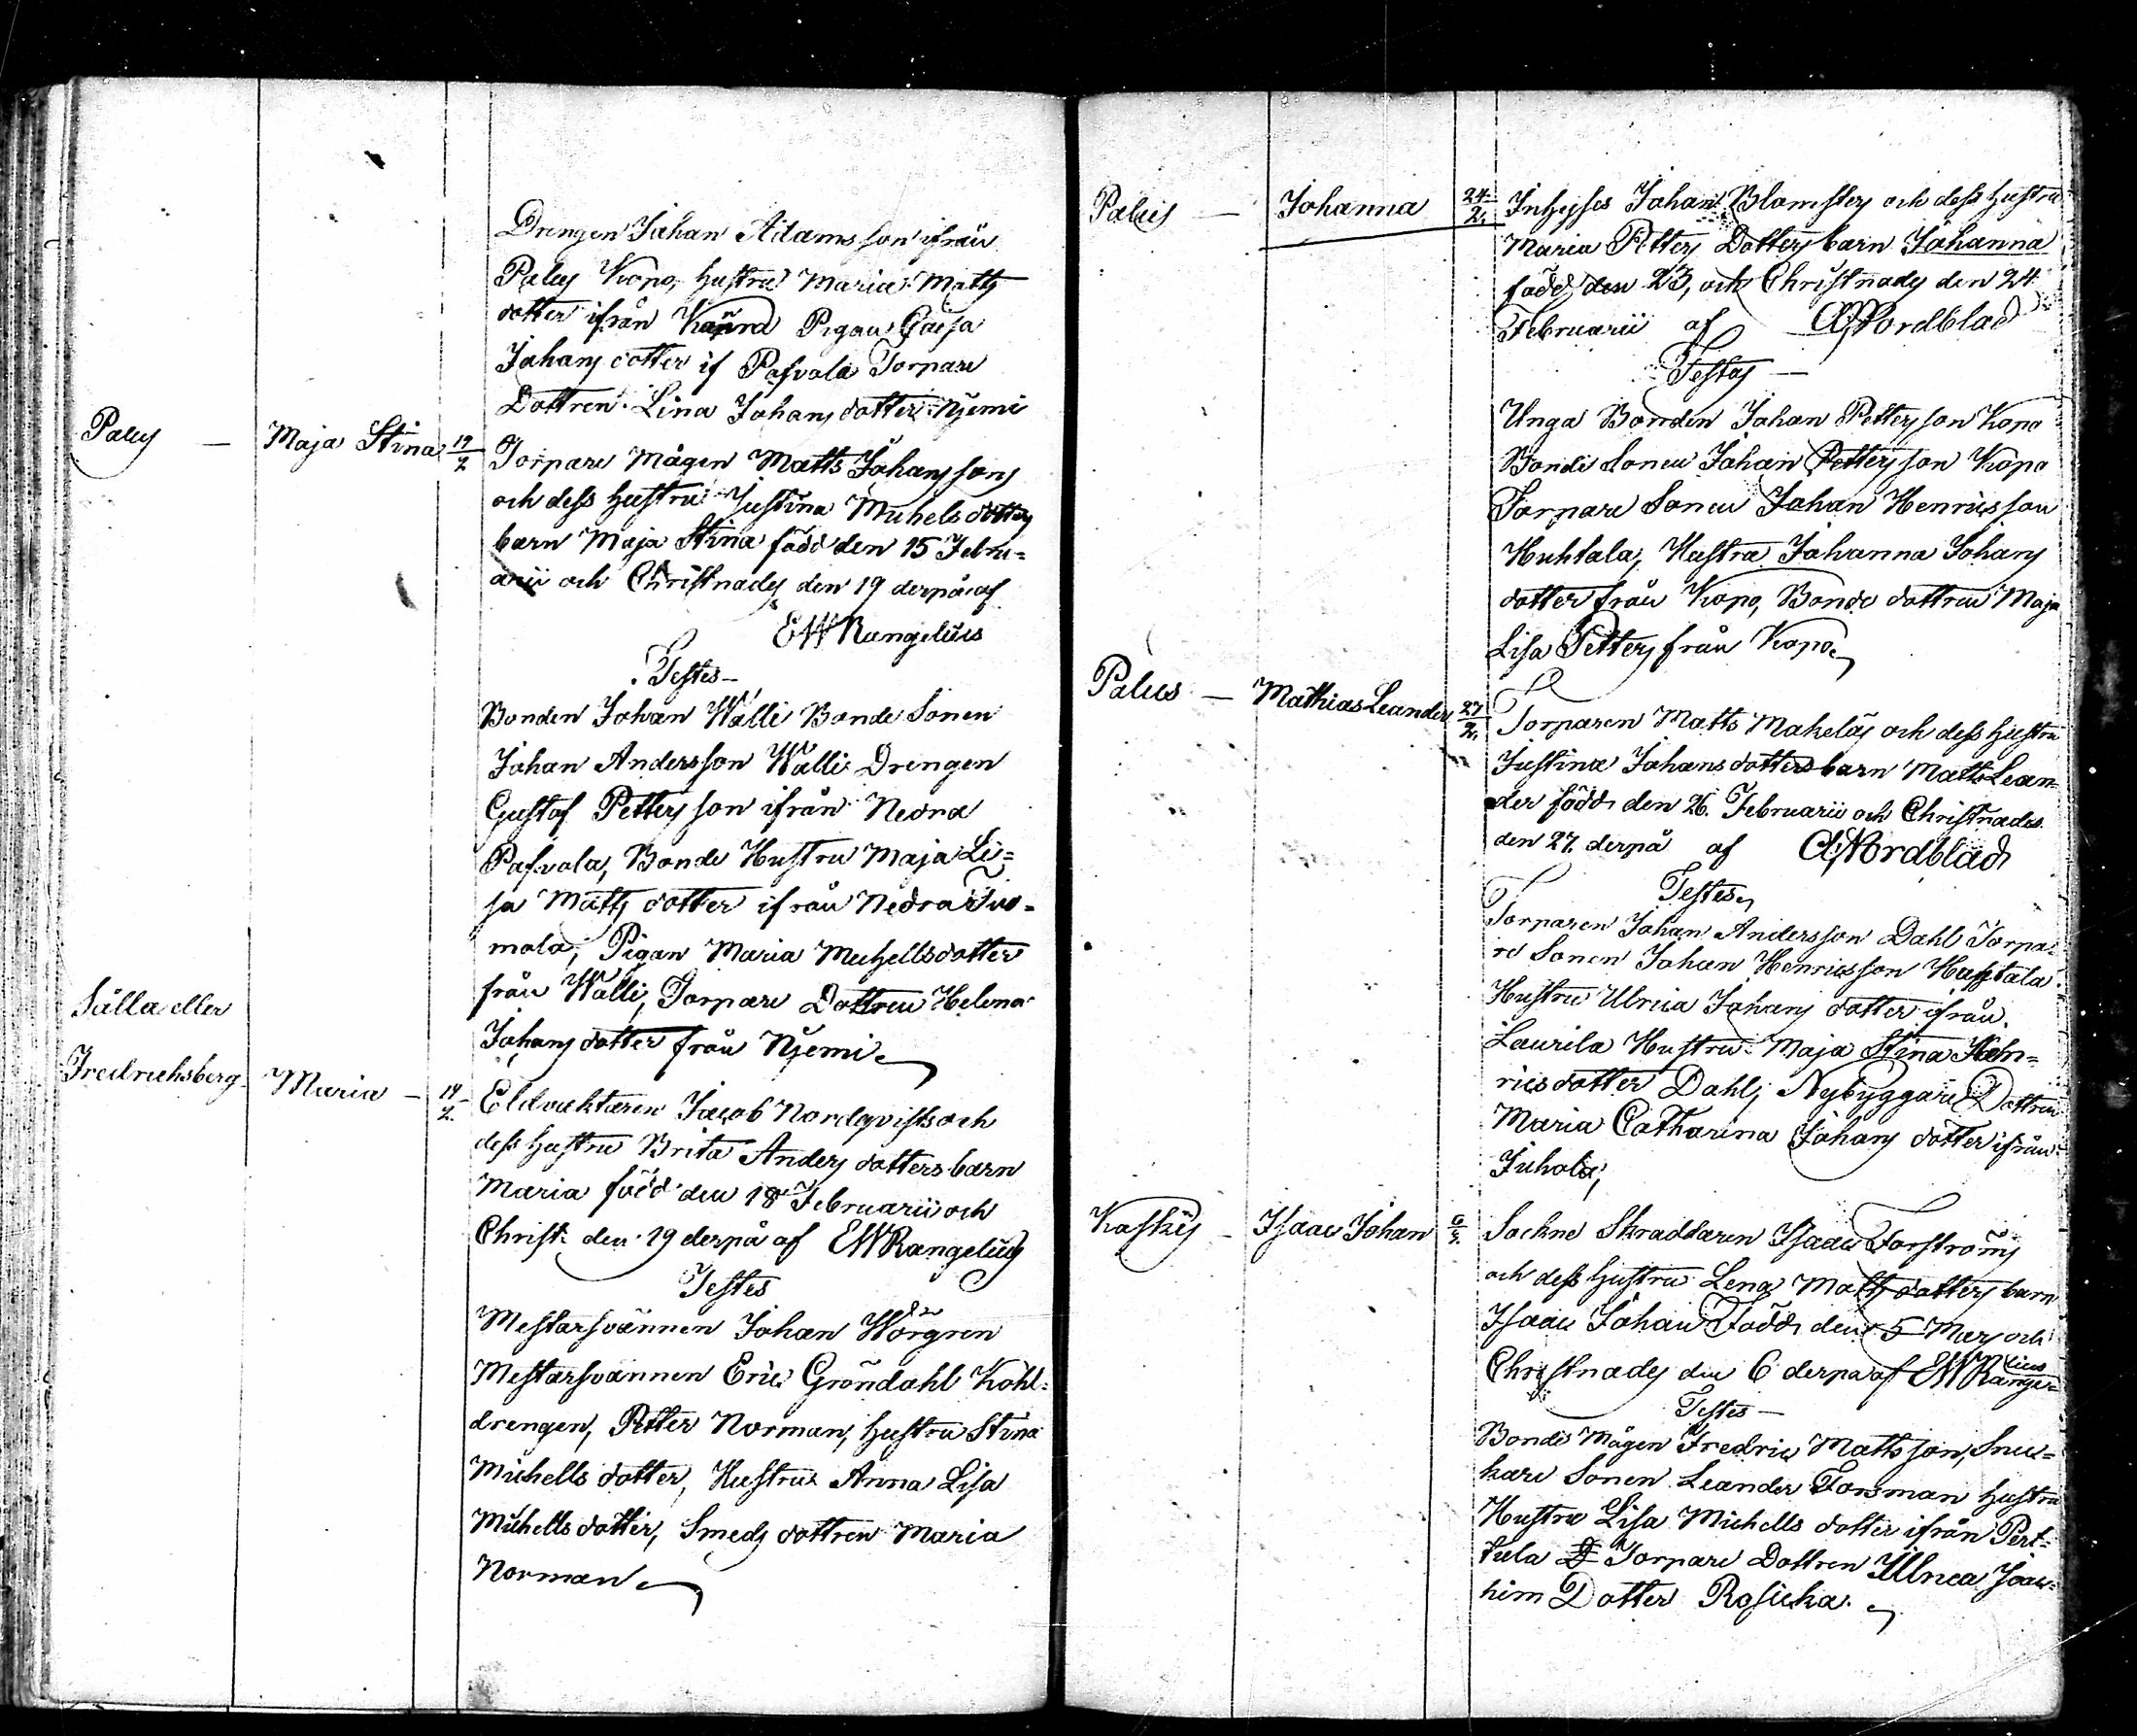 Drengen Johan Adamsson ifrån
Palus Kopo, hustru Maria Matts
dotter ifrån Pigan Caisa
Johans dotter if Pafvola Torpare
Dottren Lina Johans dotter Njemi
Palus — Maja Stina 19/2 Torpare Mågen Matts Johanssons
och dess hustru Justina Michels dotters
barn Maja Stina född den 15 Febru=
arii och Christnades den 19 derpå af
EWRangelius
Testes —
Bonden Johan Walli Bonde Sonen
Johan Andersson Walli Drengen
Gustaf Pettersson ifrån Nedra
Pafvola, Bonde Hustru Maja Li=
sa Matts dotter ifrån Nedra Tuo=
mola, Pigan Maria Michellsdotter
från Walli, Torpare Dottren Helena
Johans dotter från Njemi
Sälla eller
Fredrichsberg Maria — 19/2. Eldvaktaren Jacob Nordqvists och
dess hustru Brita Anders dotters barn
Maria född den 18 Februarii och
Christ: den 19 derpå af EWRangelius
Testes
Mestarsvännen Johan
Mestarsvännen Eric Gröndahl Kohl=
drengen, Petter Norman, hustru Stina
Michells dotter, Hustru Anna Lisa
Michells dotter, Smeds dottren Maria
Norman
Palus — Johanna 24/2. Inhyses Johan Blomsters och dess hustru
Maria Petters Dotters barn Johanna
född den 23, och Christnades den 24
Februarii af Nordblad
Testes —
Unga Bonden Johan Pettersson Kopo
Bonde Sonen Johan Pettersson Kopo
Torpare Sonen Johan Henricsson
Huhtala, Hustru Johanna Johans
dotter från Kopo, Bonde dottren Maja
Lisa Petters från Kopo
Palus — Mathias Leander 27/2. Torparen Matts Makeläs och dess hustru
Justina Johans dotters barn Matts Lean=
der född den 26. Februarii och Christnades
den 27. derpå af Nordblad
Testes
Torparen Johan Andersson Dahl Torpa=
re Sonen Johan Henricsson Huhtala
Hustru Ulrica Johans dotter ifrån
Laurila Hustru Maja Stina Hen=
rics dotter Dahl, Nybyggare Dottren
Maria Catharina Johans dotter ifrån
Juhola,
Kaskis — Isaac Johan 6/3. Sockne Skraddaren Isaac Forströms
och dess hustru Lena Matts dotters barn
Isaac Johan Född den 5 Mars och
Christnades den 6 derpå af EWRange=
lius
Testes —
Bonde Mågen Fredric Mathsson, Snic=
kare Sonen Leander Forsman hustru
Hustru Lisa Michells dotter ifrån Pert=
tula Torpare Dottren Ulrica Joac=
him Dotter